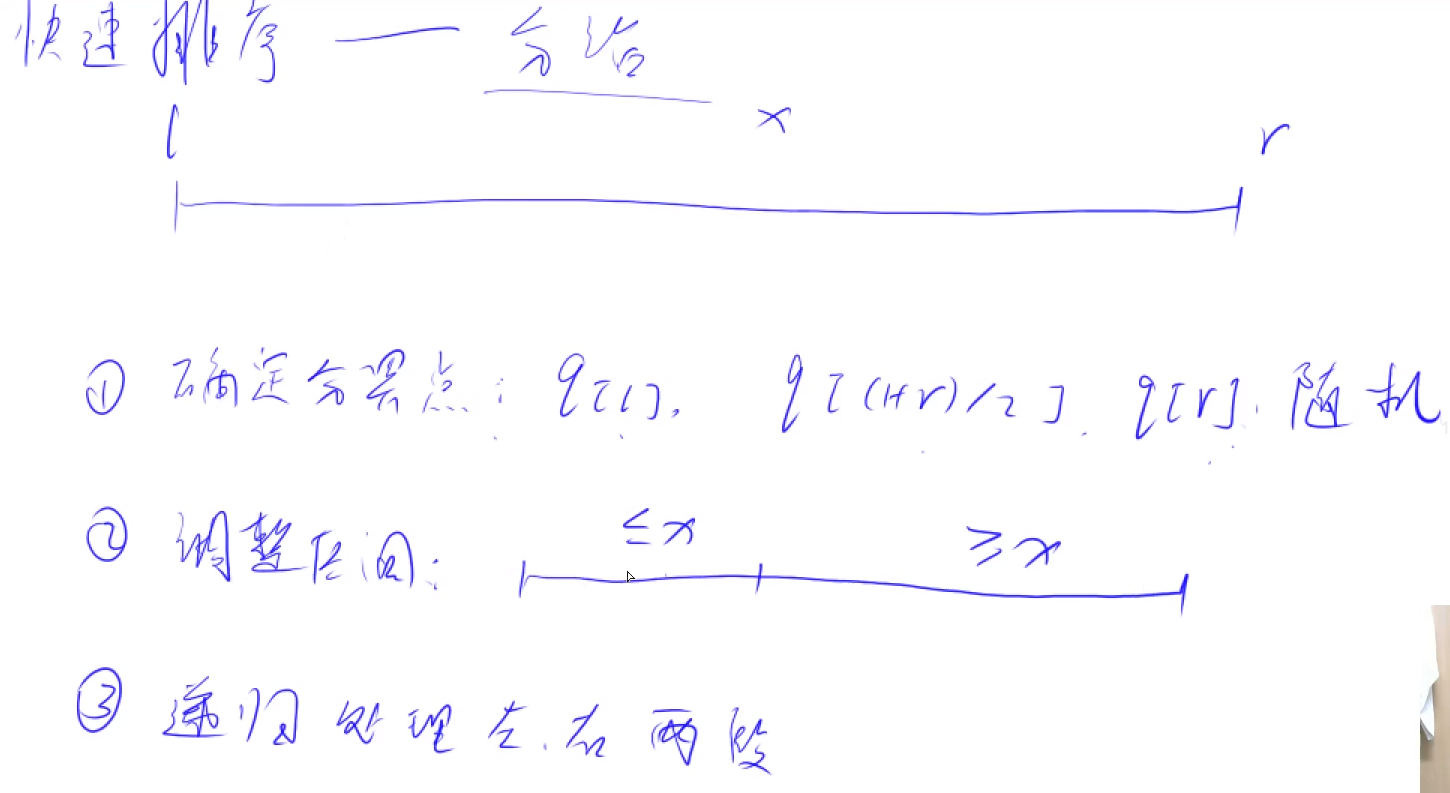 快速排序 —— 分治
l x r
① 确定分界点：q[l], q[(l+r)/2], q[r], 随机
② 调整区间： ≤x ≥x
③ 递归处理左、右两段